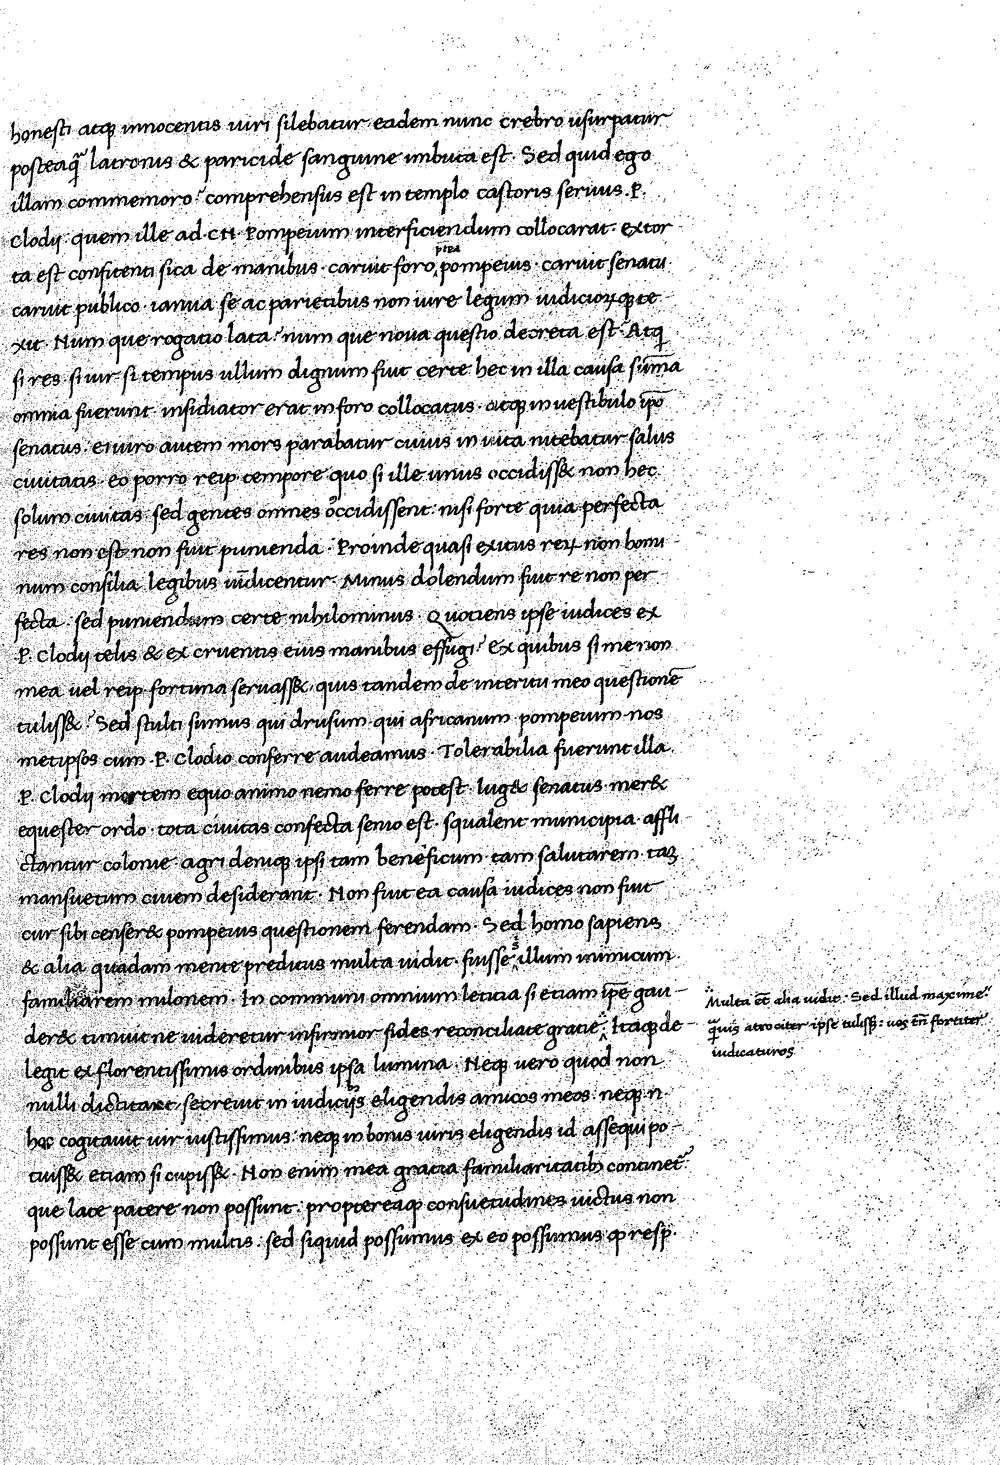 honesti atq; innocentis uiri silebatur eadem nunc crebro usurpatur
posteaq̃ latronis & paricide sanguine imbuta est. Sed quid ego
illam commemoro? comprehensus est in templo castoris seruus. P.
Clodij. quem ille ad. CN. Pompeium interficiendum collocarat. extor
ta est confitenti sica de manibus. caruit foro pompeius. caruit senatu.
caruit publico. ianua se ac parietibus non iure legum iudicioꝝq; te
xit. Num que rogatio lata? num que noua questio decreta est. Atq;
si res. si uir. si tempus ullum dignum fuit certe hec in illa causa sum̄a
omnia fuerunt. insidiator erat in foro collocatus. atq; in uestibulo ip̄o
senatus. ei uiro autem mors parabatur cuius in uita nitebatur salus
ciuitatis. eo porro reip. tempore quo si ille unus occidiss& non hec.
solum ciuitas. sed gentes omnes occidissent. nisi forte quia perfecta
res non est non fuit punienda. Proinde quasi exitus reꝝ non homi
num consilia legibus uindicentur. Minus dolendum fuit re non per
fecta. sed puniendum certe nihilominus. Quotiens ipse iudices ex
P. Clodij telis & ex cruentis eius manibus effugi? Ex quibus si me non
mea uel reip. fortuna seruass& quis tandem de interitu meo questionē
tuliss&? Sed stulti sumus qui drusum. qui africanum. pompeium. nos
metipsos cum. P. Clodio conferre audeamus. Tolerabilia fuerunt illa.
P. Clodij mortem equo animo nemo ferre potest. lug& senatus. mer&
equester ordo. tota ciuitas confecta senio est. squalent municipia. affli
ctantur colonie. agri deniq; ipsi tam beneficum. tam salutarem. taꝫ
mansuetum ciuem desiderant. Non fuit ea causa iudices non fuit
cur sibi censer& pompeius questionem ferendam. Sed homo sapiens
& alia quadam mente preditus multa uidit. fuisse illum inimicum.
familiarem milonem. In communi omnium leticia si etiam ip̄e gau
der& timuit ne uideretur infirmior fides reconciliate gratie. Itaq; de
legit ex florentissimis ordinibus ipsa lumina. Neq; uero quod non
nulli dictitant secreuit in iudicijs eligendis amicos meos. neq; n.
hoc cogitauit uir iustissimus. neq; in bonis uiris eligendis id assequi po
tuiss& etiam si cupiss&. Non enim mea gratia familiaritatib; continet̃.
que late patere non possunt. propterea q; consuetudines uictus non
possunt esse cum multis. sed siquid possumus ex eo possumus ꝙ resp.
Multa et̄ alia uidit. Sed illud maxime.
q̃uis atrociter ipse tuliss&: uos tn̄ fortiter
iudicaturos